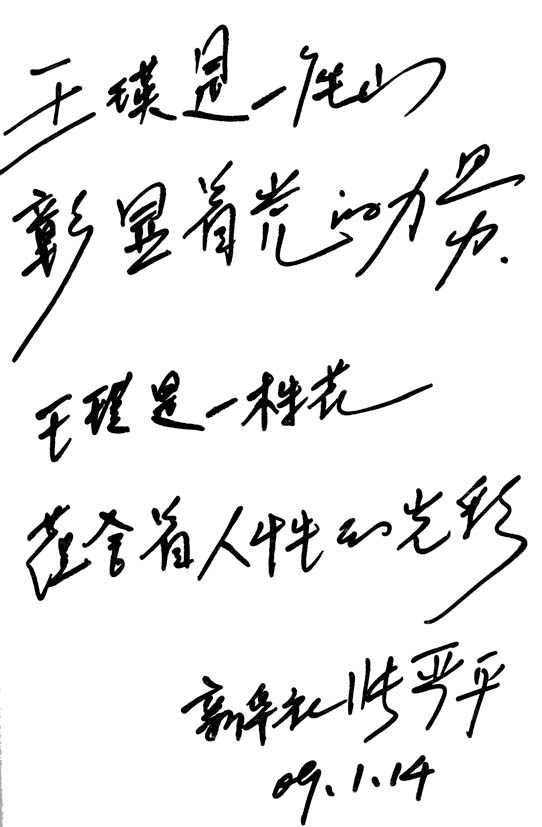 王瑛是一座山
彰显着党的力量.
王瑛是一株花
蕴含着人性的光彩
新华社 张晋平
09.1.14